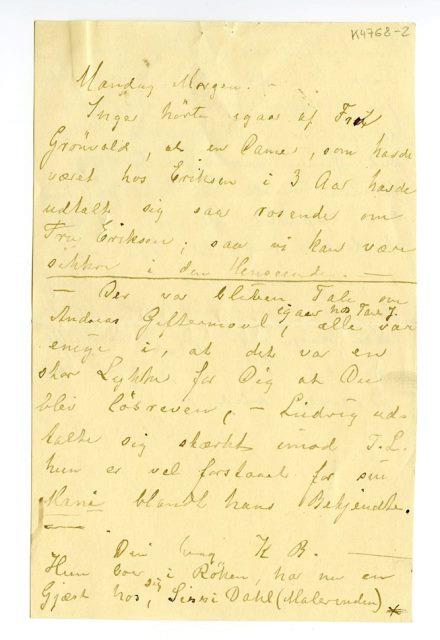 K4768-2
Mandag Morgen. —
Inger hörte igaar af Frk
Grönvold, at en Dame, som havde
været hos Eriksen i 3 Aar havde
udtalt sig saa rosende om
Fru Eriksen; saa vi kan være
sikker i den Henseende. —
— Der var bleven Tale om
igaar hos Tante J.
Andreas Giftermaal, alle var
enige i, at det var en
stor Lykke for Dig at Du
blev lösreven, — Ludvig ud-
talte sig stærkt imod T. L.
hun er vel forstaaet for sin
Mani blandt hans Bekjendte.
Din hng K B. —
Hun bor i Röken, har nu en
Gjæst hos sig, Sissi Dahl (Malerinden) *